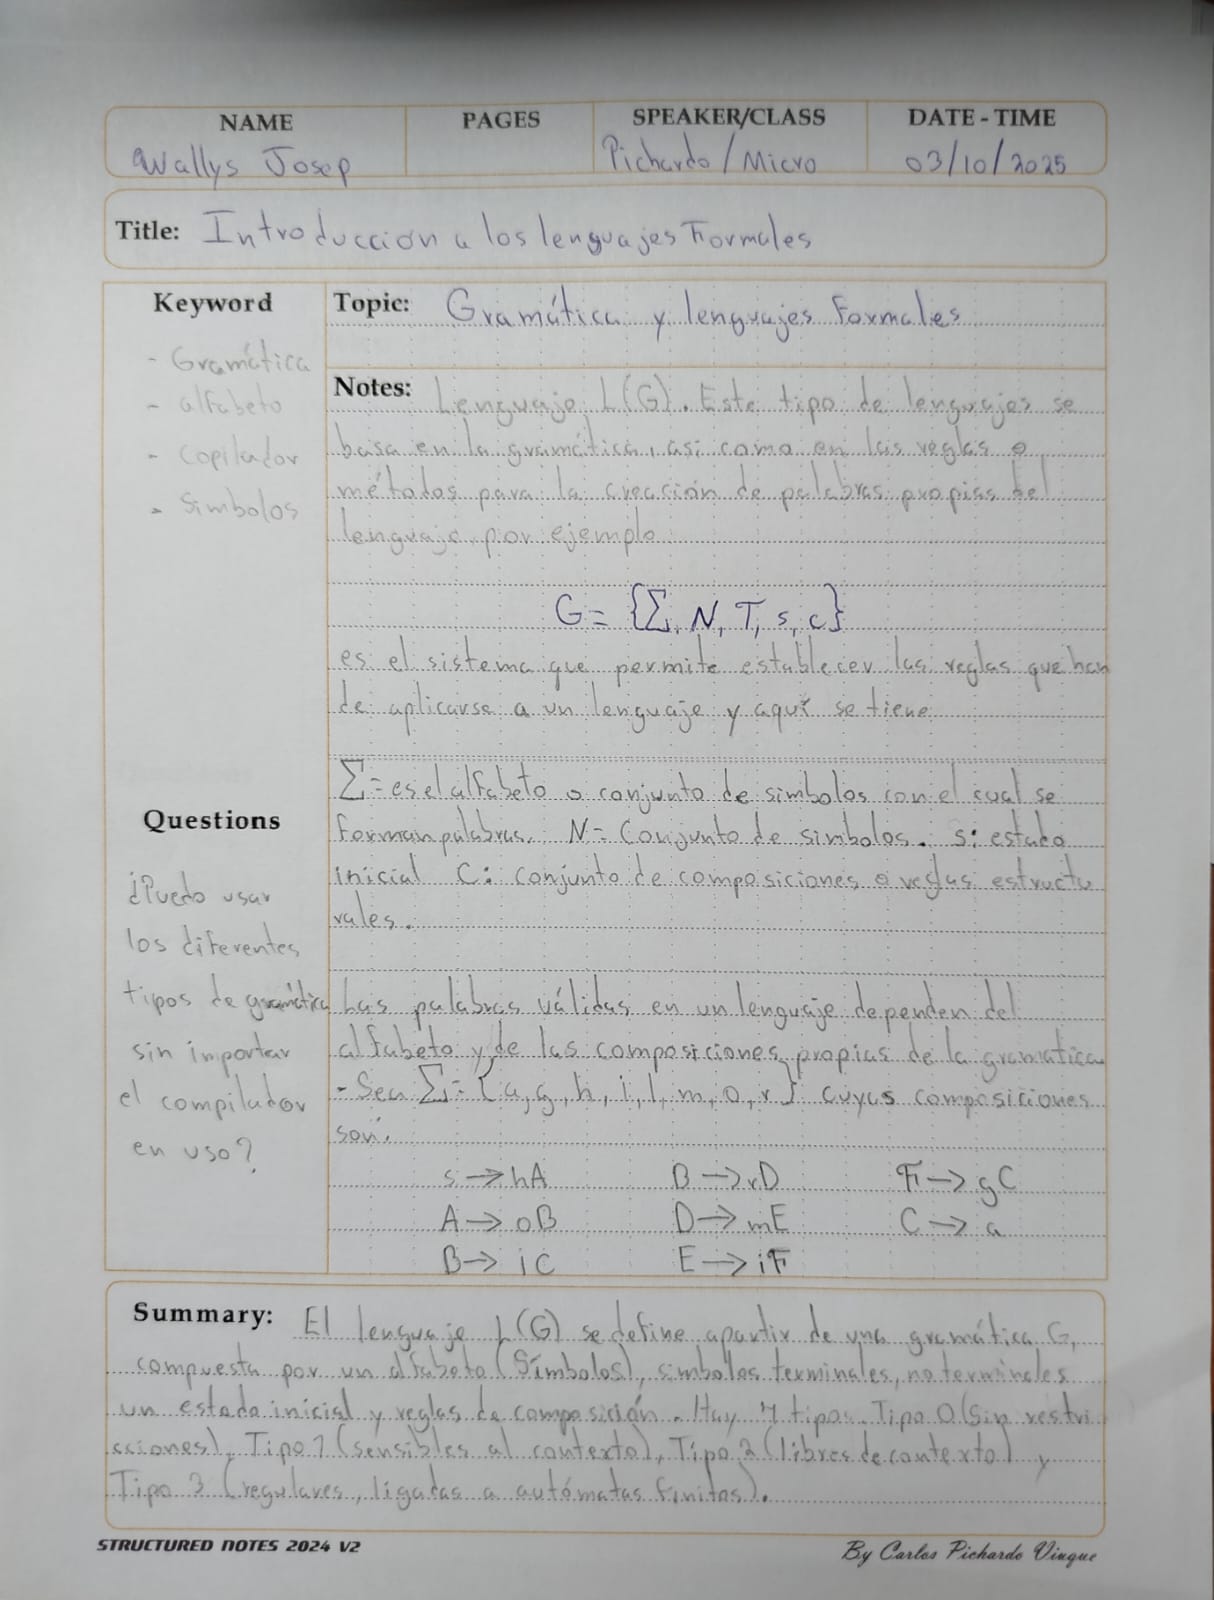 NAME PAGES SPEAKER/CLASS DATE - TIME
Wallys Josep Pichardo / Micro 03/10/2025
Title: Introducción a los lenguajes Formales
Keyword
- Gramática
- alfabeto
- Copilador
- Simbolos
Topic: Gramática y lenguajes Formales
Notes: Lenguaje L(G). Este tipo de lenguajes se
basa en la gramática, asi como en las reglas o
métodos para la creación de palabras propias del
lenguaje por ejemplo
G = {Σ, N, T, s, c}
es el sistema que permite establecer las reglas que han
de aplicarse a un lenguaje y aquí se tiene
Σ = es el alfabeto o conjunto de simbolos con el cual se
forman palabras. N = Conjunto de simbolos. s: estado
inicial C: conjunto de composiciones o reglas estructu
rales.
Las palabras válidas en un lenguaje dependen del
alfabeto y de las composiciones propias de la gramatica
- Sea Σ = {a, g, h, i, l, m, o, r} cuyas composiciones
son:
s → hA B → rD F → gC
A → oB D → mE C → a
B → iC E → iF
Questions
¿Puedo usar
los diferentes
tipos de gramática
sin importar
el compilador
en uso?
Summary: El lenguaje L(G) se define apartir de una gramática G,
compuesta por un alfabeto (Símbolos), simbolos terminales, no terminales
un estado inicial y reglas de composición. Hay 4 tipos. Tipo 0 (Sin restri
cciones), Tipo 1 (sensibles al contexto), Tipo 2 (libres de contexto) y
Tipo 3 (regulares, ligadas a autómatas finitos).
STRUCTURED NOTES 2024 V2 By Carlos Pichardo Viuque